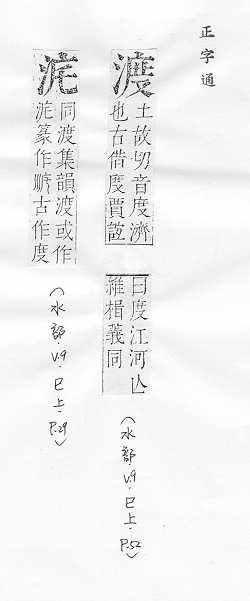 正字通
渡
土故切音度濟
也古借度賈誼
曰度江河亾
維楫義同
(水部.V.9.巳上.P.52)
同渡集韻渡或作
篆作 古作度
(水部.V.9.巳上.P.29)